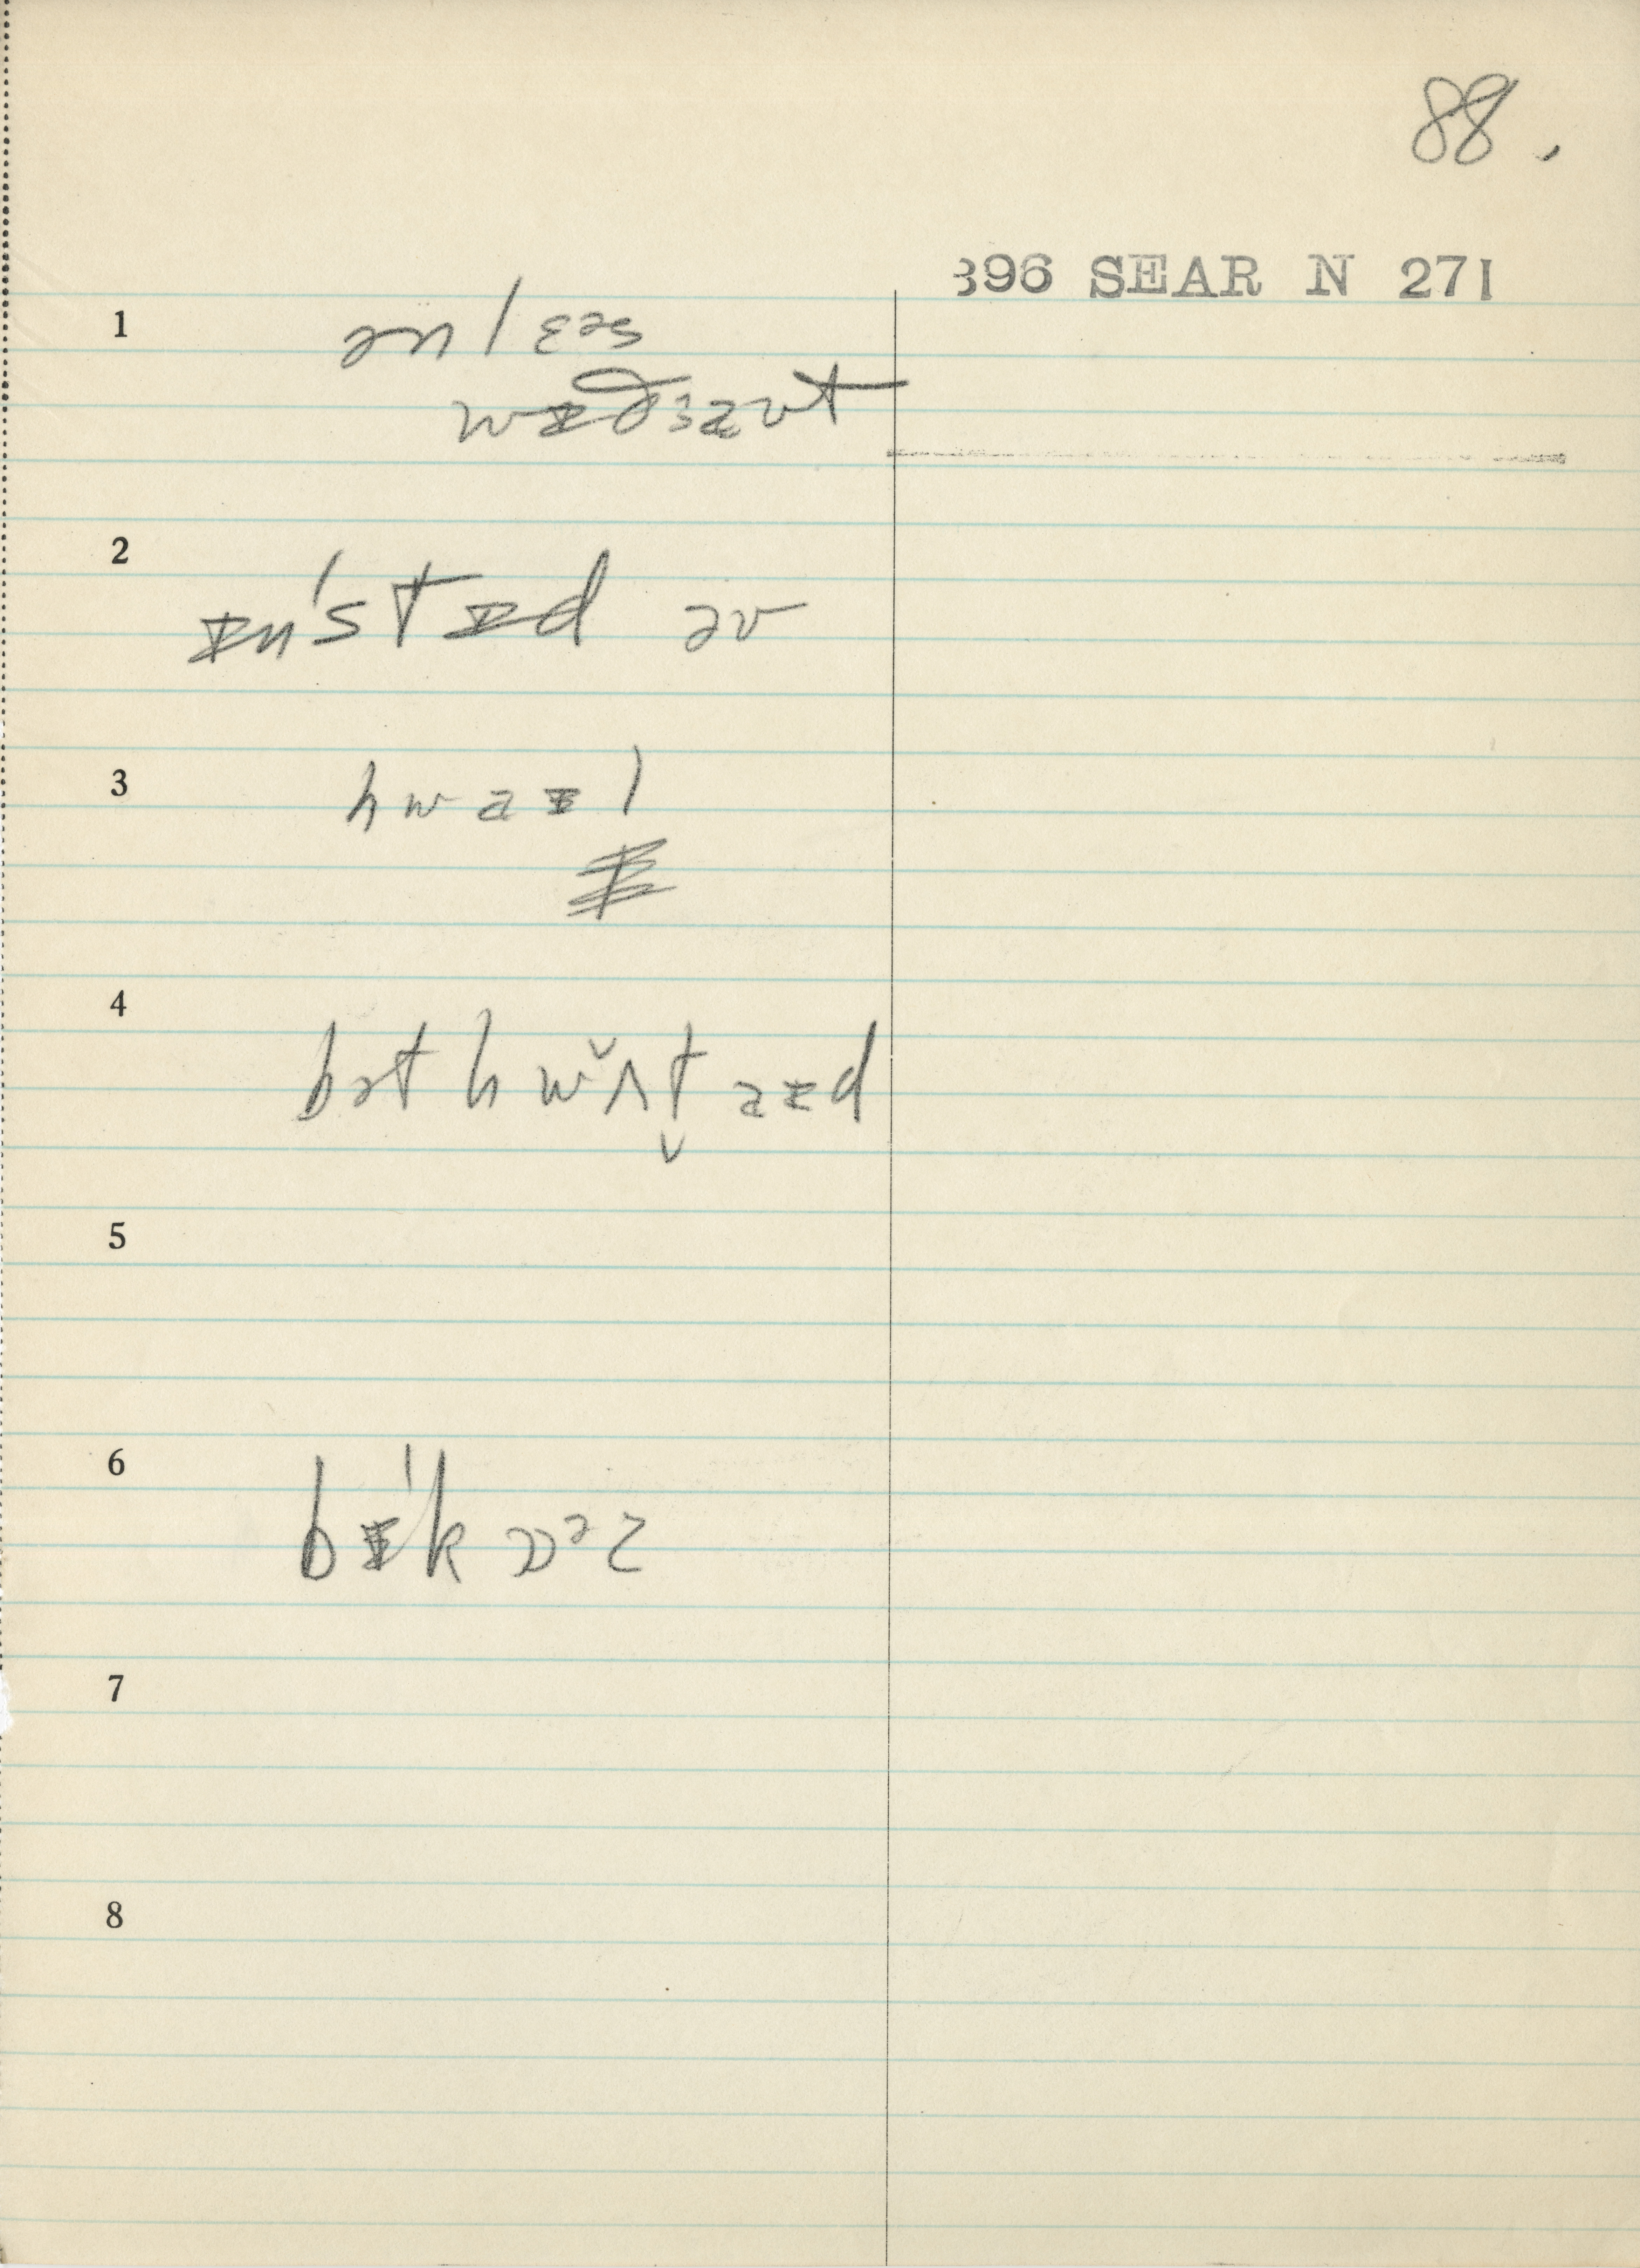 88.
396 SEAR N 271
1 ən lɛəs
wɪðaʊt
2 ɪn'stɪd əv
3 hwaɪl
4 bət hwʌt aɪd
5
6 bɪ'kɔəz
7
8